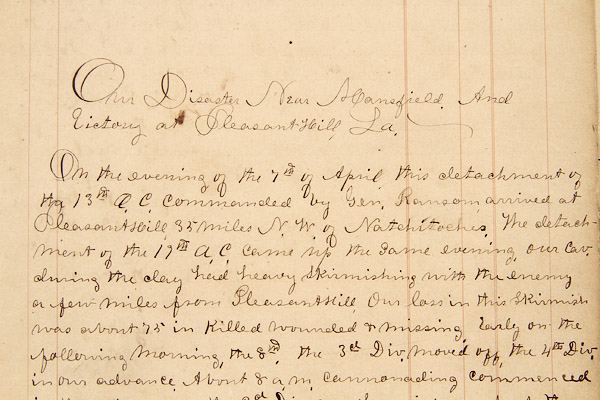 Our Disaster Near Mansfield And
Victory at Pleasant Hill, La.
On the evening of the 7th of April this detachment of
the 13th A.C. commanded by Gen. Ransom, arrived at
Pleasant Hill, 35 miles N.W. of Natchitoches. The detach-
ment of the 19th A.C. came up the same evening, our cav
during the day had heavy skirmishing with the enemy
a few miles from Pleasant Hill, Our loss in this skirmish
was about 75 in killed wounded & missing. Early on the
following morning, the 8th the 3d Div. moved off, the 4th Div.
in our advance. About 8 a.m. cannonading commenced